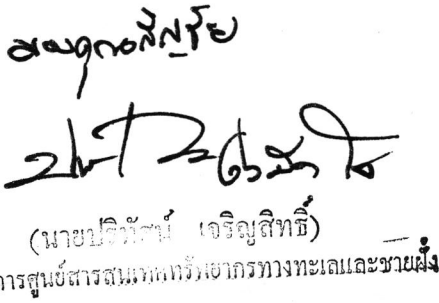 มอบคุณอัญชัย
(นายปริทัศน์ เจริญสิทธิ์)
การศูนย์สารสนเทศทรัพยากรทางทะเลและชายฝั่ง